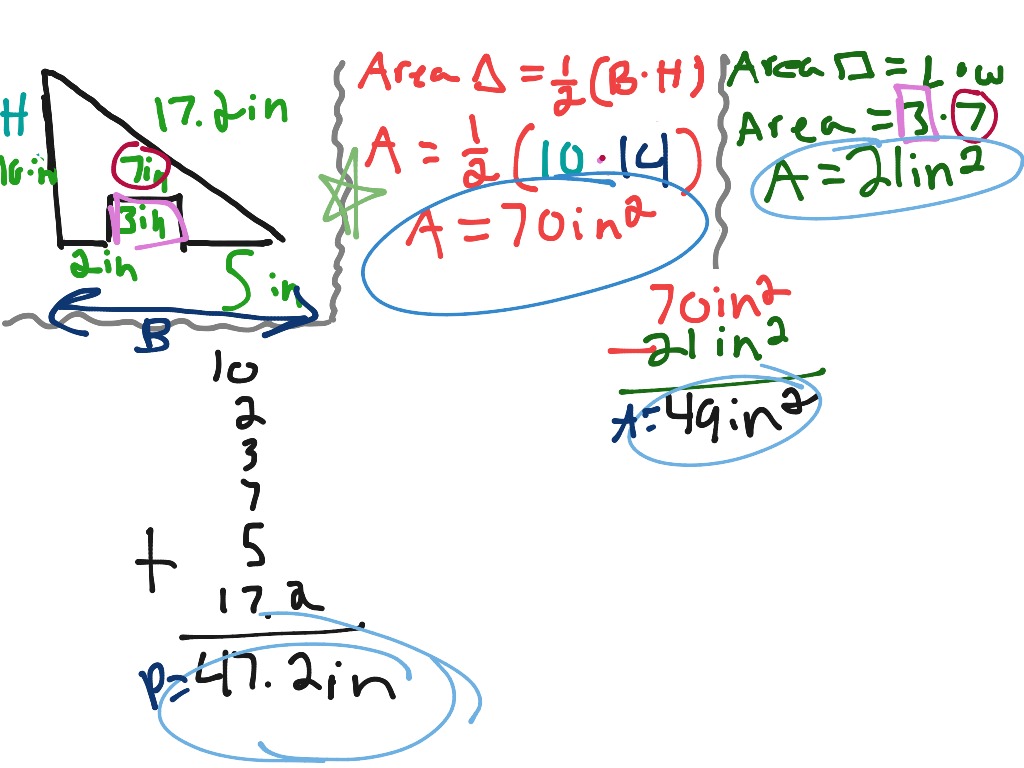 H
17.2in
10in
7in
3in
2in
5in
B
Area △ = 1/2 (B · H)
A = 1/2 (10 · 14)
A = 70in²
Area □ = L · w
Area = 3 · 7
A = 21in²
70in²
- 21in²
A = 49in²
10
2
3
7
5
+ 17.2
P = 47.2in